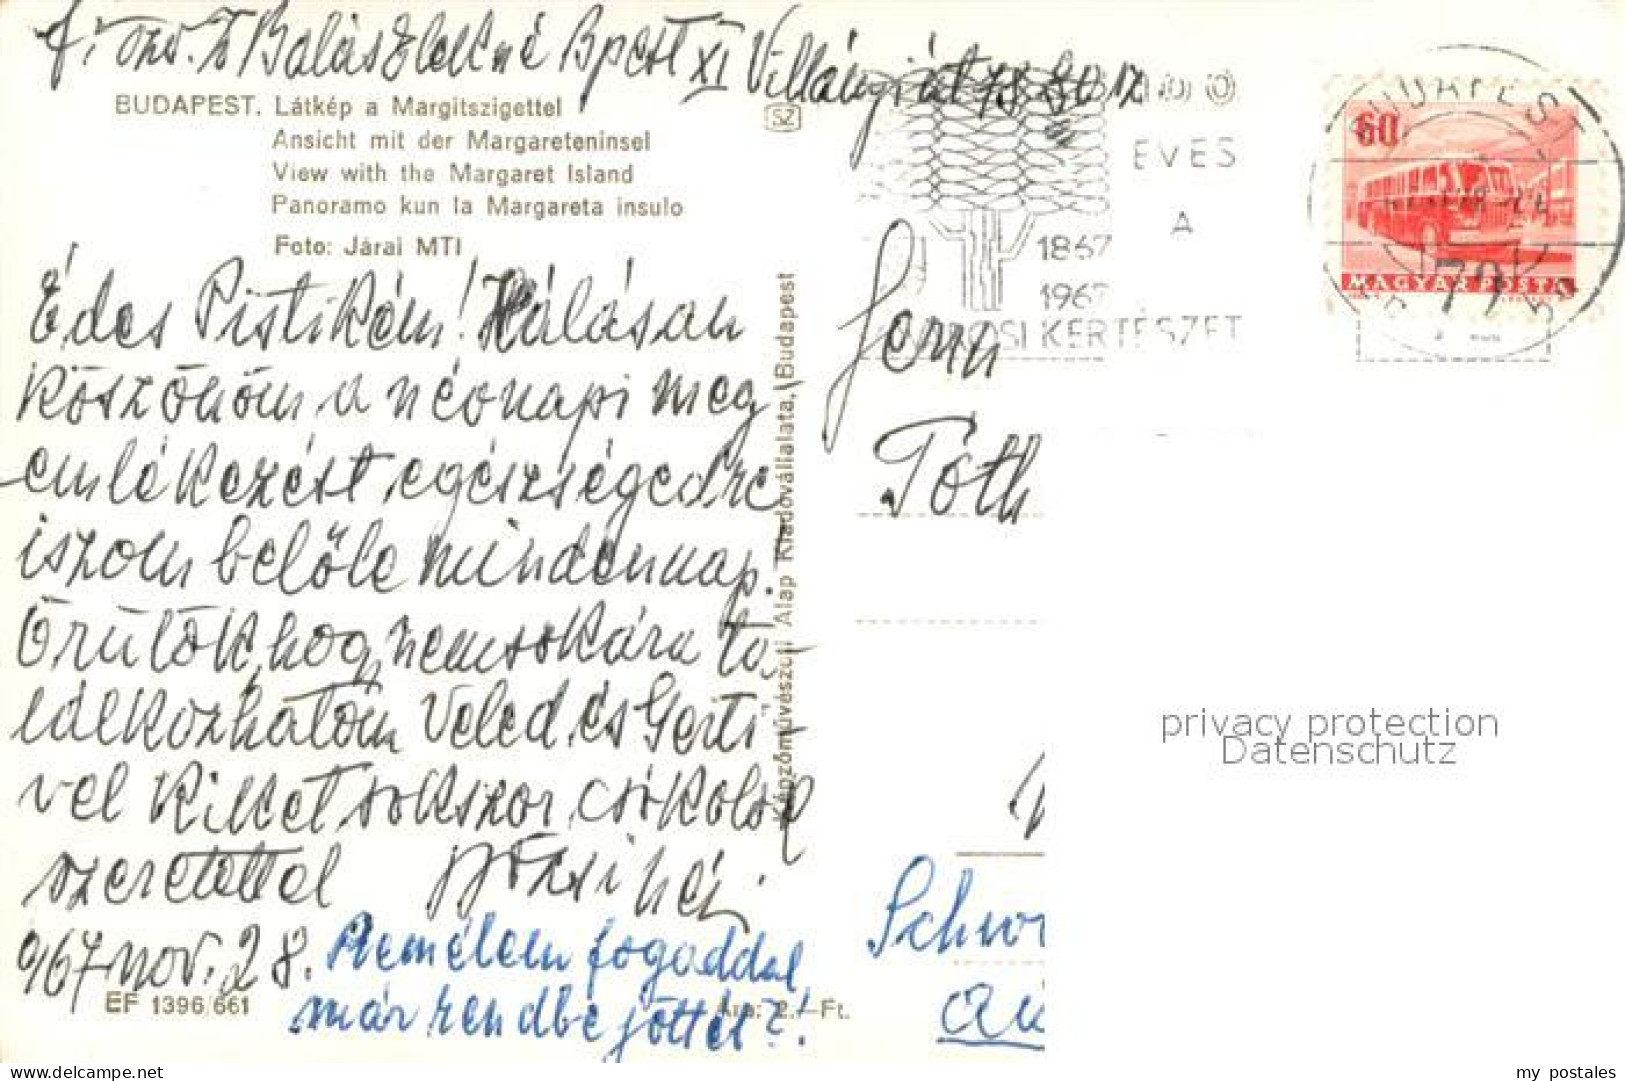 BUDAPEST. Látkép a Margitszigettel
Ansicht mit der Margareteninsel
View with the Margaret Island
Panoramo kun la Margareta insulo
Foto: Járai MTI
SZ
Édes Pistikém! Hálásan
köszönöm a névnapi meg
emlékezést egészségedre
iszom belőle mindennap.
Örülök, hogy nemsokára ta-
lálkozhatom Veled, és Gerti-
vel kiket sokszor csókolok
szeretettel Józsi
967 nov. 28. Remélem fogaddal
már rendbe jöttél?!
EF 1396/661
Ára: 2.- Ft.
Képzőművészeti Alap Kiadóvállalata, Budapest
ÉVES
A
1867
1967
KERTÉSZET
BUDAPEST
60
MAGYAR POSTA
Tóth
privacy protection
Datenschutz
my_postales